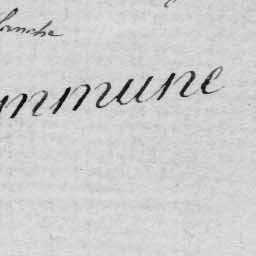 lanche
ommune